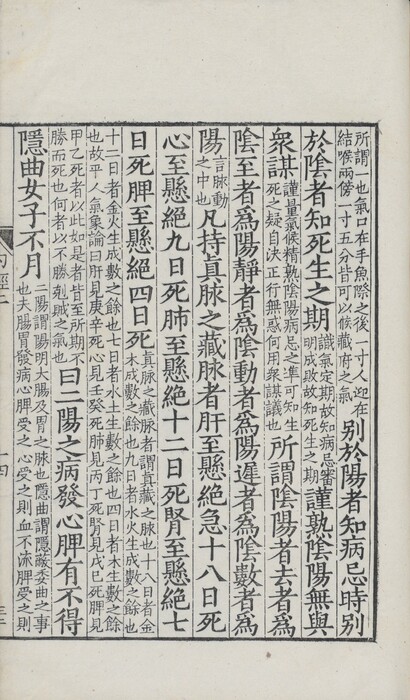 所謂一也氣口在手魚際之後一寸人迎在
結喉兩傍一寸五分皆可以候藏府之氣
別於陽者知病忌時别
於陰者知死生之期
識氣定期故知病忌審
明成敗故知死生之期
謹熟陰陽無與
衆謀
謹量氣候精熟陰陽病忌之凖可知生
死之疑自決正行無惑何用衆謀議也
所謂陰陽者去者爲
陰至者爲陽靜者爲陰動者爲陽遲者爲陰數者爲
陽
言脉動
之中也
凡持真脉之藏脉者肝至懸絕急十八日死
心至懸絕九日死肺至懸絕十二日死腎至懸絕七
日死脾至懸絕四日死
真脉之藏脉者謂真藏之脉也十八日者金
木成數之餘也九日者水火生成數之餘也
十二日者金火生成數之餘也七日者水土生數之餘也四日者木生數之餘
也故平人氣象論曰肝見庚辛死心見壬癸死肺見丙丁死腎見戊巳死脾見
甲乙死者以此如是者皆至所期不
勝而死也何者以不勝剋賊之氣也
曰二陽之病發心脾有不得
隱曲女子不月
二陽謂陽明大腸及胃之脉也隱曲謂隱蔽委曲之事
也夫腸胃發病心脾受之心受之則血不流脾受之則